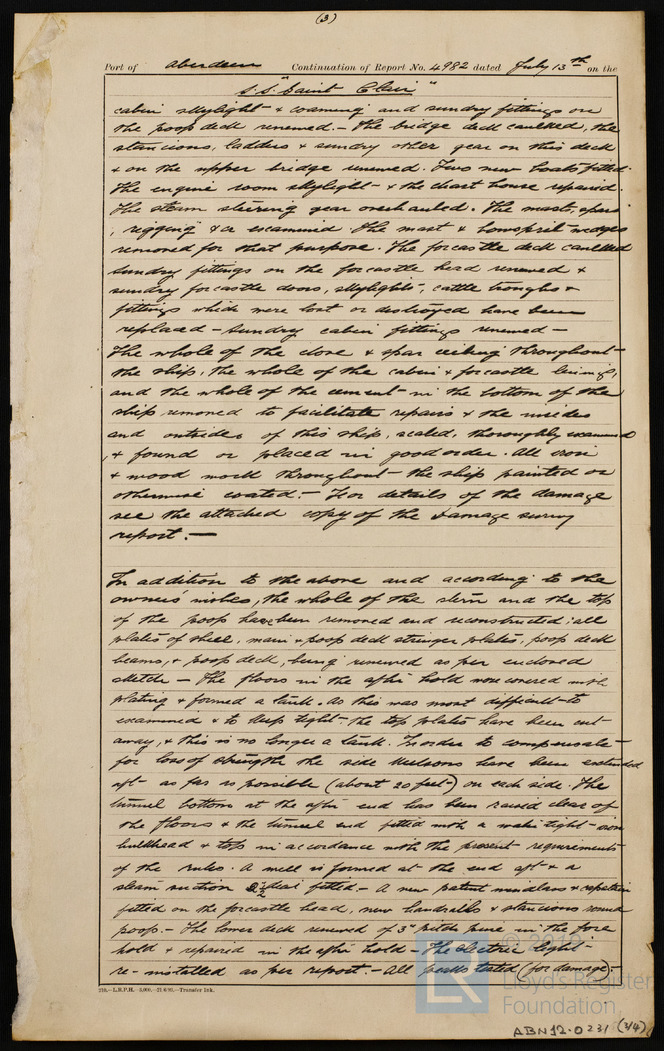 (3)
Port of Aberdeen Continuation of Report No. 4982 dated July 13th on the
S.S. "Saint Clair"
cabin skylight & coaming and sundry fittings on
the poop deck renewed. - The bridge deck caulked, the
stancions, ladders & sundry other gear on this deck
& on the upper bridge renewed. Two new boats fitted.
The engine room skylight & the chart house repaired.
The steam steering gear overhauled. The masts, spars
, rigging &c examined. The mast & bowsprit wedges
removed for that purpose. The forcastle deck caulked
Sundry fittings on the forcastle head renewed &
sundry forcastle doors, skylights, cattle troughs &
fittings which were lost or destroyed have been
replaced - Sundry cabin fittings renewed -
The whole of the close & spar ceiling throughout
the ship, the whole of the cabin & forcastle linings,
and the whole of the cement in the bottom of the
ship removed to facilitate repairs & the insides
and outsides of this ship, scaled, thoroughly examined
, & found or placed in good order. All iron
& wood work throughout the ship painted or
otherwise coated. - For details of the damage
see the attached copy of the damage survey
report. -
In addition to the above and according to the
owners' wishes, the whole of the stern and the top
of the poop have been removed and reconstructed: all
plates of shell, main & poop deck stringer plates, poop deck
beams, & poop deck, being renewed as per enclosed
sketch - The floors in the after hold were covered with
plating & formed a tank. As this was most difficult to
examined & to keep tight. the top plates have been cut
away, & this is no longer a tank. In order to compensate
for loss of strength the side keelsons have been extended
aft as far as possible (about 20 feet) on each side. The
tunnel bottom at the after end has been raised clear of
the floors & the tunnel end fitted with a water tight iron
bulkhead & top in accordance with the present requirements
of the rules. A well is formed at the end aft & a
steam suction 2½" diar fitted. - A new patent windlass & capstan
fitted on the forcastle head, new handrails & stancions round
poop. - The lower deck renewed of 3" pitch pine in the fore
hold & repaired in the after hold - The electric light
re-installed as per report. - All peaks tested (for damage).
219.-L.R.P.H. -3,000.-21/6/00.-Transfer Ink.
LR
Lloyd's Register
Foundation
ABN12-0231 (3/4)